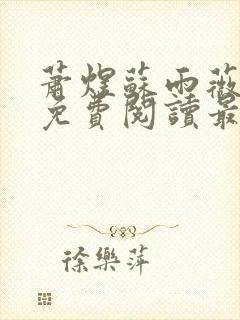 蕭煜蘇雨薇
免費閱讀最
徐樂萍